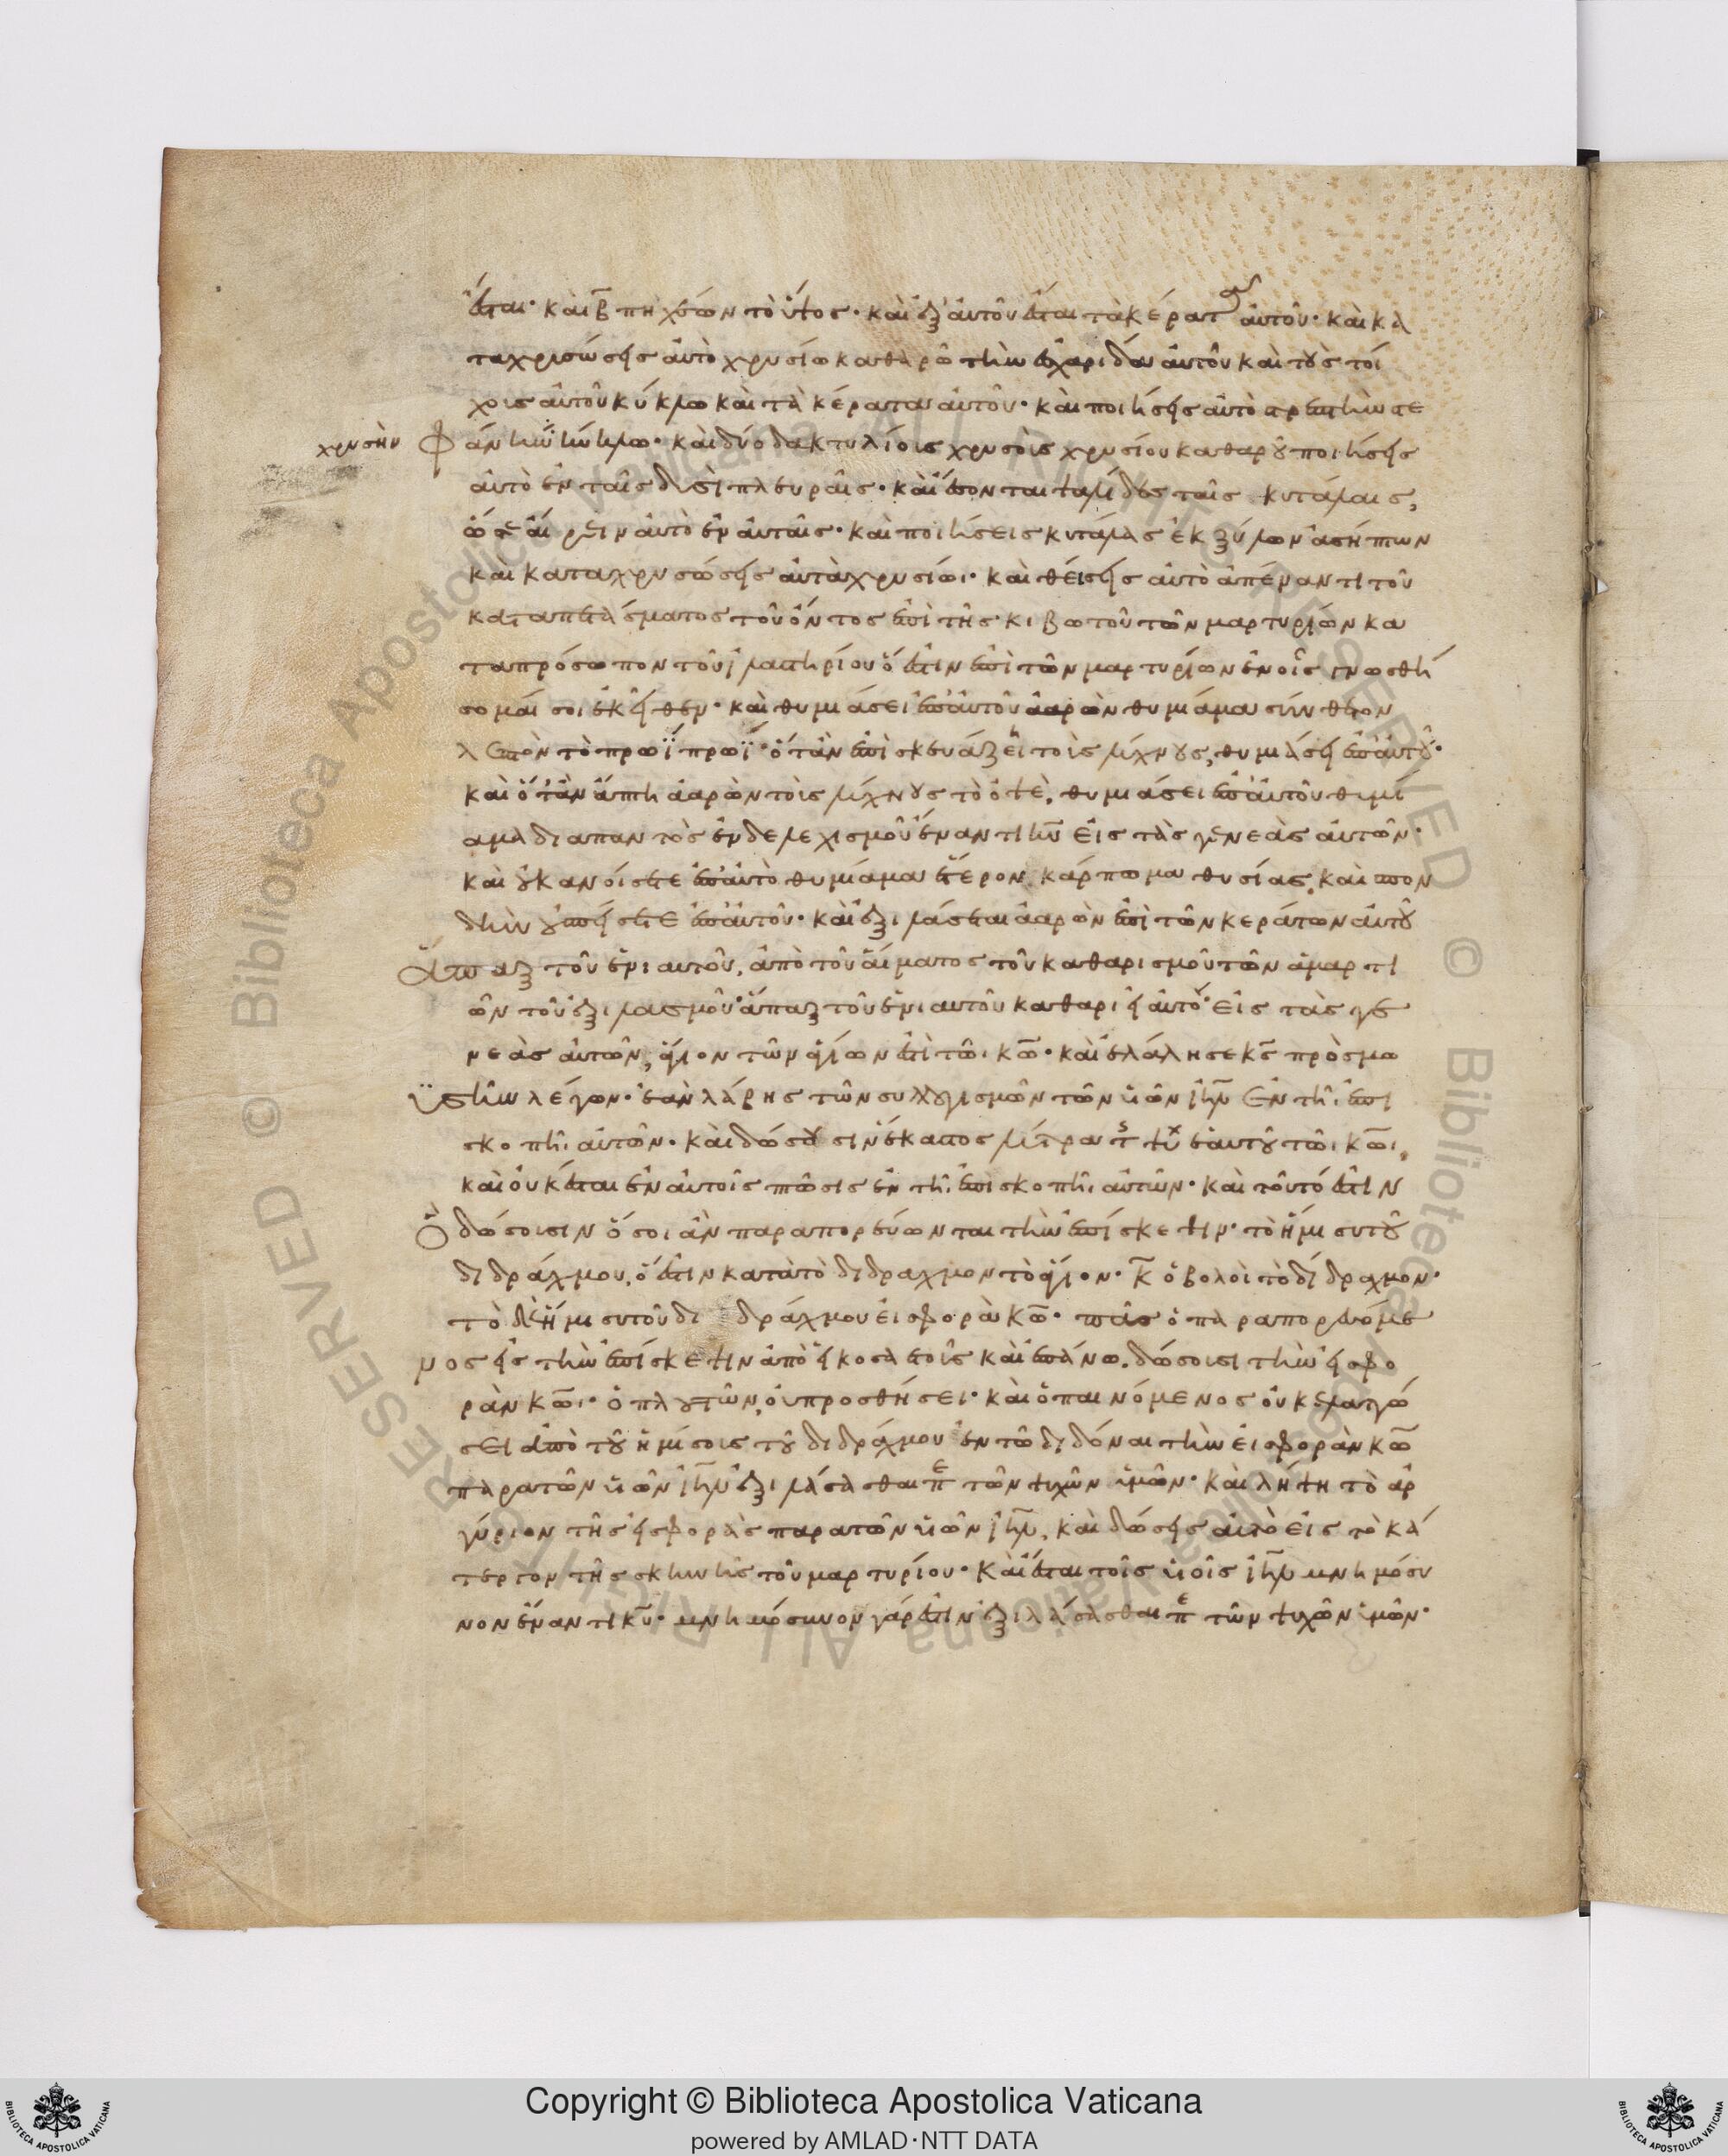 ἔσται· καὶ β̅ πηχέων τὸ ὕψος· καὶ ἐξ αὐτοῦ ἔσται τὰ κέρατ αὐτοῦ· καὶ κα
ταχρυσώσῃς αὐτὸ χρυσίω καθαρῶ τὴν ἐσχαρίδαν αὐτοῦ καὶ τοὺς τοί
χοις αὐτοῦ κύκλω καὶ τὰ κέρατα αὐτοῦ· καὶ ποιήσῃς αὐτὸ στρεπτὴν στε
χρυσὴν
φάνην κύκλω· καὶ δύο δακτυλίοις χρυσοὶς χρυσίου καθαροῦ ποιήσῃς
αὐτὸ ἐν ταῖς δυσὶ πλευραῖς· καὶ ἔσονται ψαλίδες ταῖς κυτάλαις,
ὥστε αἴρειν αὐτὸ ἐν αὐταῖς· καὶ ποιήσεις κυτάλας ἐκ ξύλων ἀσήπων
καὶ καταχρυσώσῃς αὐτὰ χρυσίωι· καὶ θείσῃς αὐτὸ ἀπέναντι τοῦ
καταπετάσματος τοῦ ὄντος ἐπὶ τῆς κιβωτοῦ τῶν μαρτυρίων κα
τα πρόσωπον τοῦ ἱλαστηρίου ὅ ἐστιν ἐπὶ τῶν μαρτυρίων ἐν οἷς γνωσθή
σομαί σοι ἐκῇθεν· καὶ θυμιάσει ἐπ' αὐτοῦ ἀαρὼν θυμίαμα σύνθετον
λεπτὸν τὸ πρωῒ πρωΐ· ὅταν ἐπισκευάζει τοὶς λύχνους, θυμιάσῃ ἐπ' αὐτοῦ·
καὶ ὅταν ἅπτη ἀαρὼν τοὶς λύχνους τὸ ὀψὲ, θυμιάσει ἐπ' αὐτοῦ θυμί
αμα διαπαντὸς ἐνδελεχισμοῦ ἔναντι κ̅υ̅ εἰς τὰς γενεὰς αὐτῶν·
καὶ οὐκ ανοίσετε ἐπ' αὐτὸ θυμίαμα ἕτερον κάρπωμα θυσίας, καὶ σπον
δὴν οὐ σπείσετε ἐπ' αὐτοῦ· καὶ ἐξιλάσεται ἀαρὼν ἐπὶ τῶν κεράτων αὐτοῦ
ἅπαξ τοῦ ἐνιαυτοῦ, ἀπὸ τοῦ αἵματος τοῦ καθαρισμοῦ τῶν ἁμαρτι
ῶν τοῦ ἐξιλασμοῦ· ἅπαξ τοῦ ἐνιαυτοῦ καθαριῇ αὐτό· εἰς τὰς γε
νεὰς αὐτῶν, ἅγιον τῶν ἁγίων ἐστὶ τῶι κ̅ω̅· καὶ ἐλάλησε κ̅ς̅ πρὸς μω
ϋσὴν λέγων· ἐὰν λάβης τῶν συλλογισμῶν τῶν υἱῶν ἰη̅λ̅ ἐν τῆι ἐπι
σκοπῆι αὐτῶν· καὶ δώσουσιν ἕκαστος λύτρα τ ψυχ ἑαυτοῦ τῶι κ̅ω̅ι,
καὶ οὐκ ἔσται ἐν αὐτοῖς πτῶσις ἐν τῆι ἐπισκοπῆι αὐτῶν· καὶ τοῦτό ἐστιν
ὃ δώσοισιν ὅσοι ἂν παραπορεύωνται τὴν ἐπίσκεψιν· τὸ ἥμισυ τοῦ
διδράχμου, ὅ ἐστιν κατὰ τὸ δίδραχμον τὸ ἅγιον· κ̅ ὀβολοὶ τὸ δίδραχμον·
τὸ δὲ ἥμισυ τοῦ διδράχμου εἰσφορὰ κ̅ω̅· πᾶς ὁ παραπορευόμε
νος εἰς τὴν ἐπίσκεψιν ἀπὸ ἠκοσαετοῖς καὶ ἐπάνω, δώσοισι τὴν ἠσφο
ρὰν κ̅ω̅ι· ὁ πλουτῶν, οὐ προσθήσει· καὶ ὁ παινόμενος οὐκ ἐλαττώ
σει ἀπὸ τοῦ ἡμίσοις τοῦ διδράχμου ἐν τῶ διδόναι τὴν εἰσφορὰν κ̅ω̅
παρα τῶν υἱῶν ἰη̅λ̅ ἐξιλάσασθαι πε τῶν ψυχῶν ὑμῶν· καὶ λήψη τὸ αρ
γύριον τῆς ἠσφορὰς παρα τῶν υἱῶν ἰη̅λ̅, καὶ δώσῃς αὐτὸ εἰς τὸ κά
τεργον τῆς σκηνῆς τοῦ μαρτυρίου· καὶ ἔσται τοῖς υἱοῖς ἰη̅λ̅ μνημόσυ
νον ἔναντι κ̅υ̅· μνημόσυνον γάρ ἐστιν ἐξιλάσασθαι πε τῶν ψυχῶν ὑμῶν·
© Biblioteca Apostolica Vaticana ALL RIGHTS RESERVED © Biblioteca Apostolica Vaticana ALL RIGHTS RESERVED
Copyright © Biblioteca Apostolica Vaticana
powered by AMLAD·NTT DATA
BIBLIOTECA APOSTOLICA VATICANA
BIBLIOTECA APOSTOLICA VATICANA